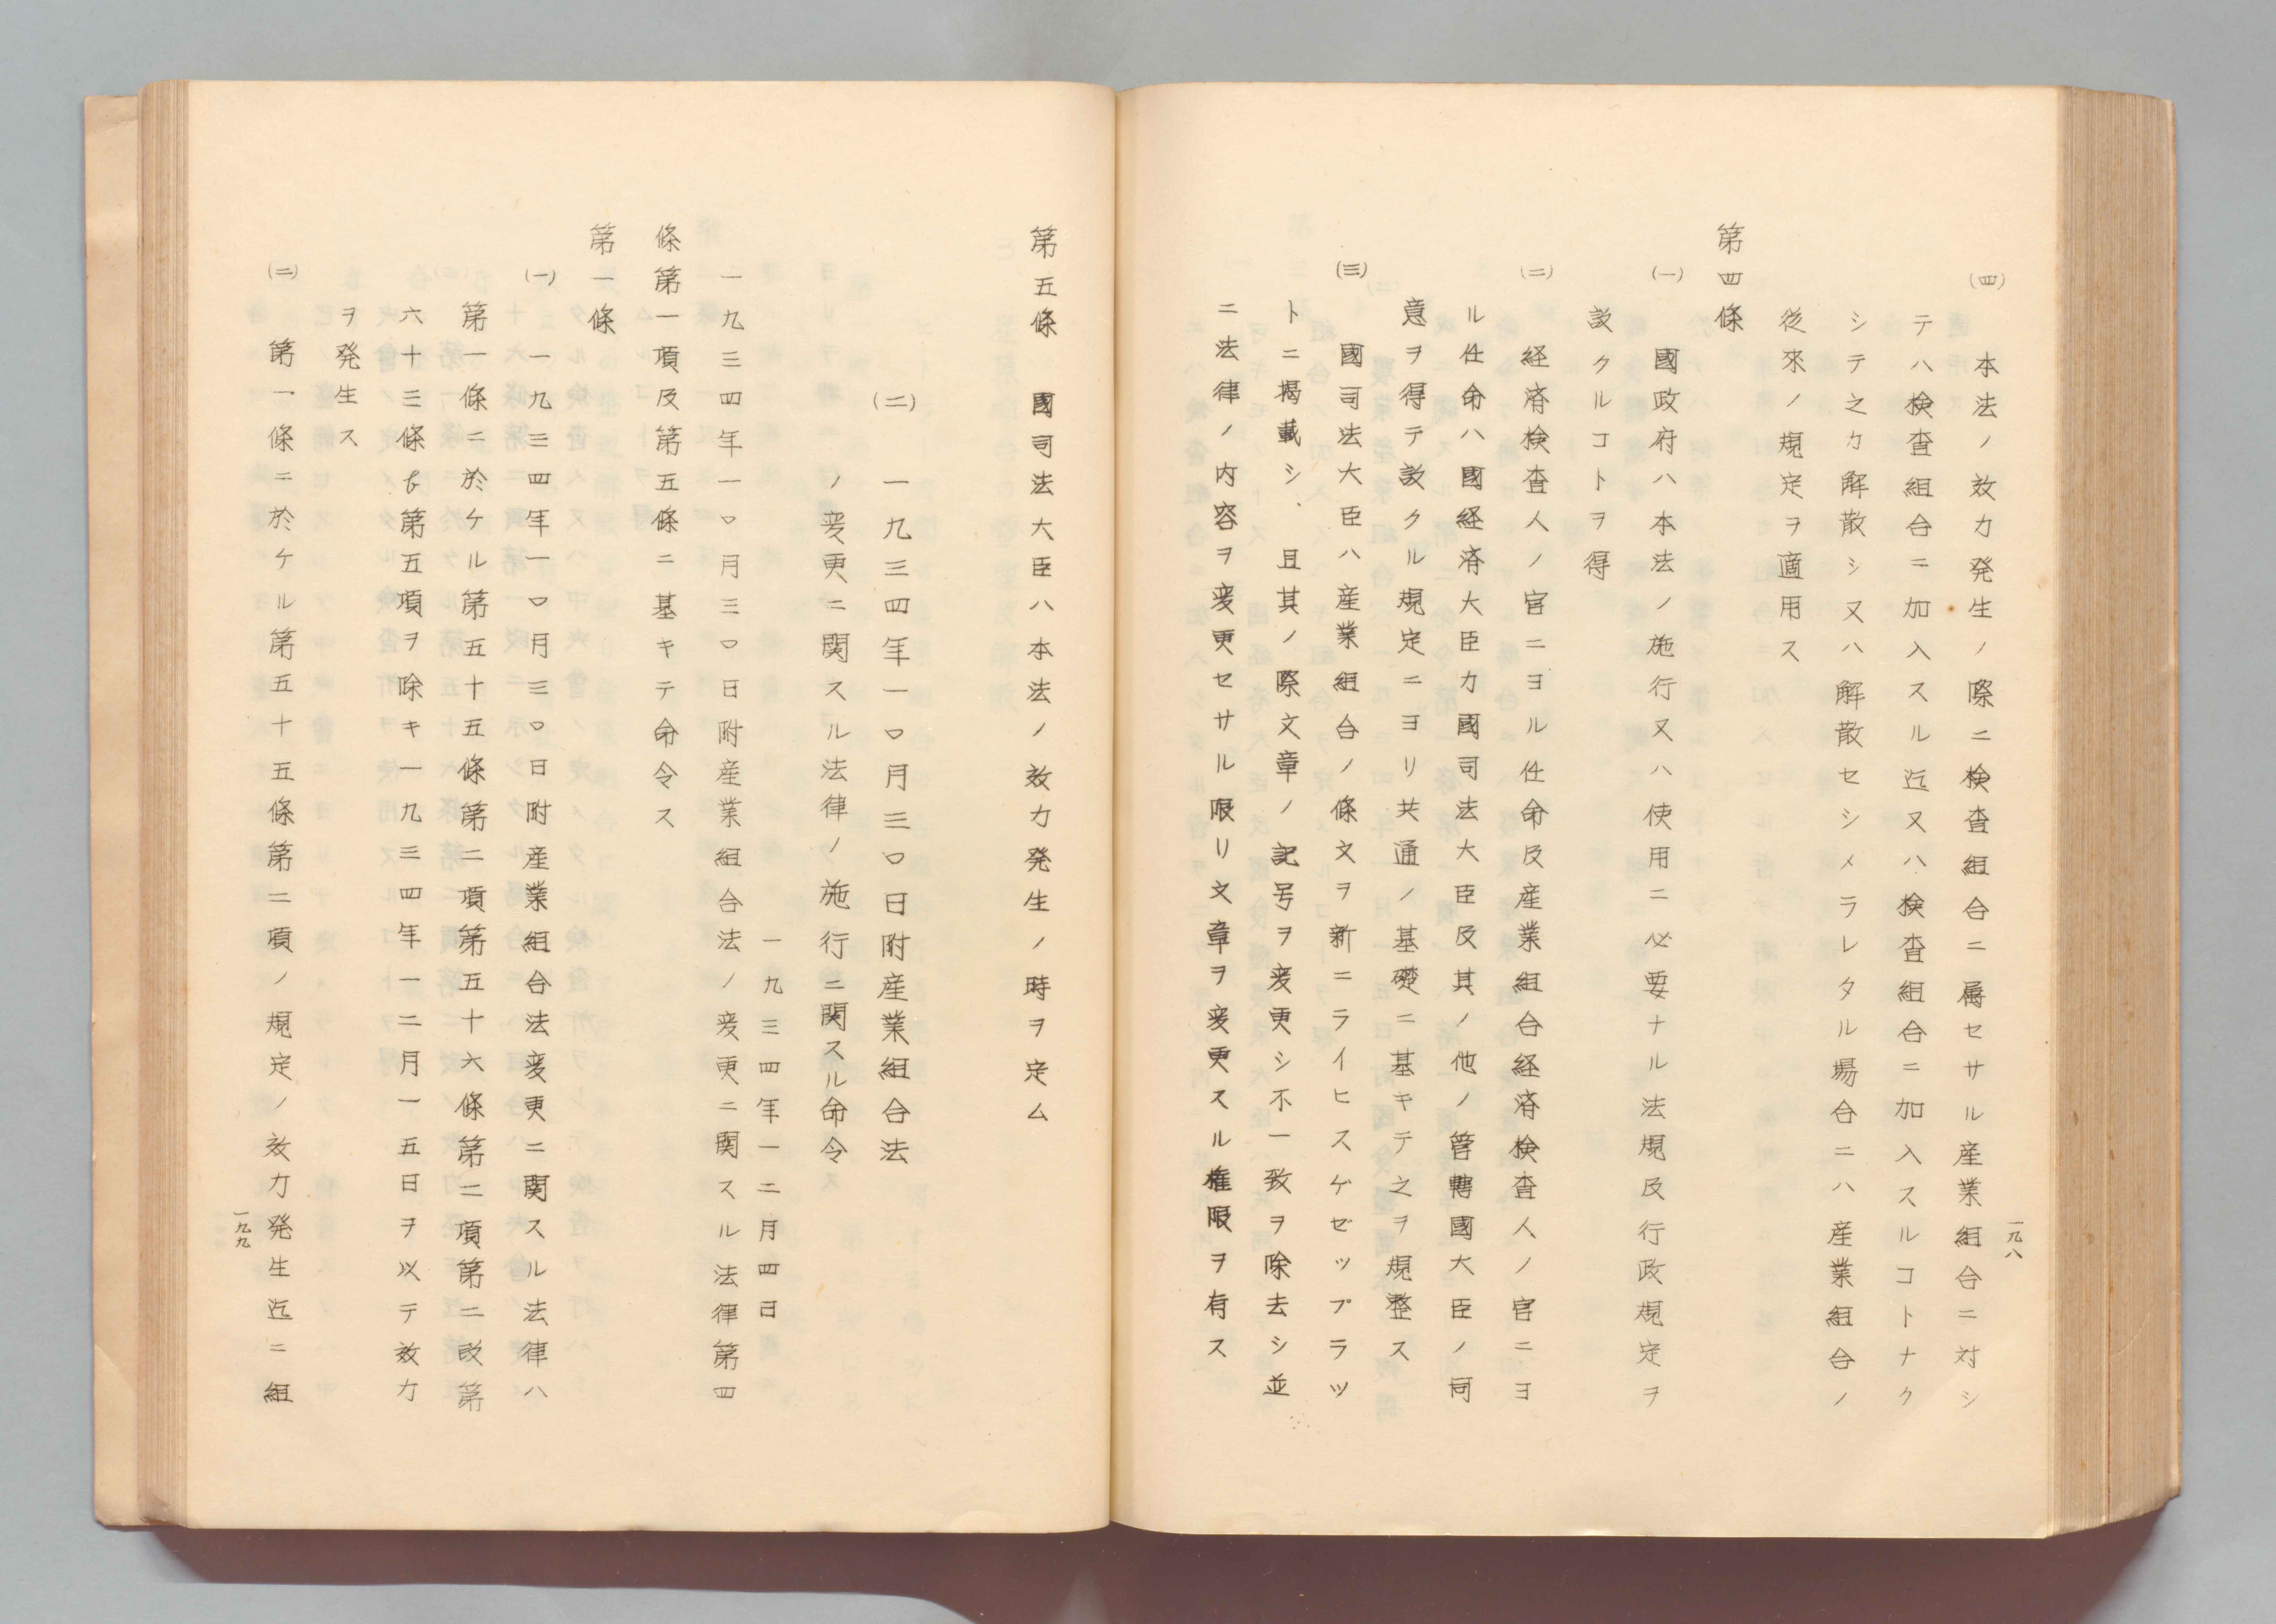 一九八
(四) 本法ノ效力発生ノ際ニ検査組合ニ属セサル産業組合ニ対シ
テハ検査組合ニ加入スル迄又ハ検査組合ニ加入スルコトナク
シテ之カ解散シ又ハ解散セシメラレタル場合ニハ産業組合ノ
從來ノ規定ヲ適用ス
第四條
(一) 國政府ハ本法ノ施行又ハ使用ニ必要ナル法規及行政規定ヲ
設クルコトヲ得
(二) 経済検査人ノ官ニヨル任命及産業組合経済検査人ノ官ニヨ
ル任命ハ國経済大臣カ國司法大臣及其ノ他ノ管轄國大臣ノ同
意ヲ得テ設クル規定ニヨリ共通ノ基礎ニ基キテ之ヲ規整ス
(三) 國司法大臣ハ産業組合ノ條文ヲ新ニライヒスゲゼップラッ
トニ掲載シ、且其ノ際文章ノ記号ヲ変更シ不一致ヲ除去シ並
ニ法律ノ内容ヲ変更セサル限リ文章ヲ変更スル権限ヲ有ス
第五條 國司法大臣ハ本法ノ效力発生ノ時ヲ定ム
(二) 一九三四年一〇月三〇日附産業組合法
ノ変更ニ関スル法律ノ施行ニ関スル命令
一九三四年一二月四日
一九三四年一〇月三〇日附産業組合法ノ変更ニ関スル法律第四
條第一項及第五條ニ基キテ命令ス
第一條
(一) 一九三四年一〇月三〇日附産業組合法変更ニ関スル法律ハ
第一條ニ於ケル第五十五條第二項第五十六條第二項第二改第
六十三條も第五項ヲ除キ一九三四年一二月一五日ヲ以テ效力
ヲ発生ス
(二) 第一條ニ於ケル第五十五條第二項ノ規定ノ效力発生迄ニ組
一九九